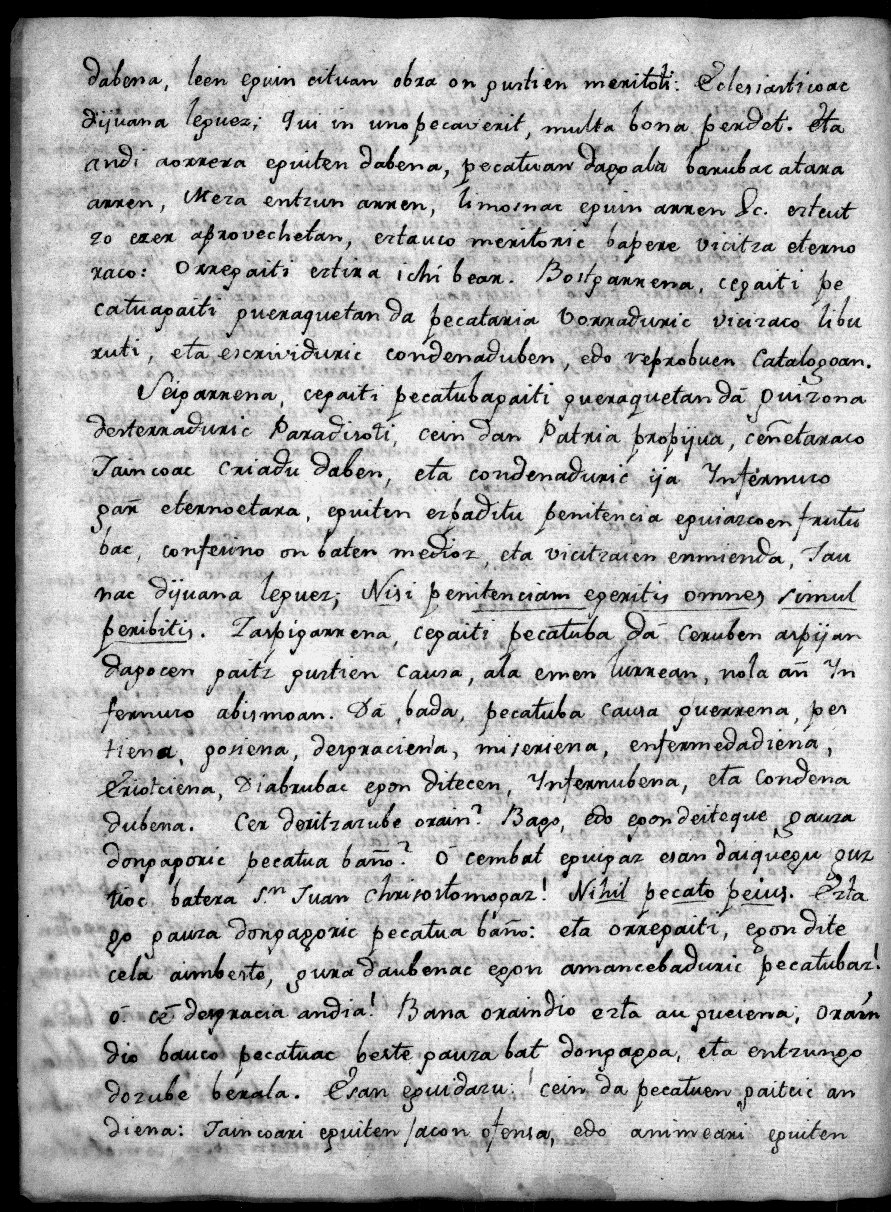 dabena, leen eguin cituan obra on gustien meritoti. Eclesiasticoac
dijuana leguez; Qui in uno pecaverit, multa bona perdet. eta
andi aorrera eguiten dabena, pecatuan dagoala barubac atara
arren, Meza entzun arren, limosnac eguin arren &c. ezteut
zo ezer aprovechetan, eztauco meritoric bapere vicitza eterno
raco: Orregaiti eztira ichi bear. Bostgarrena, cegaiti pe
catuagaiti gueraquetan da pecataria borraduric vicizaco libu
ruti, eta escrividuric condenaduben, edo reprobuen Catalogoan.
Seigarrena, cegaiti pecatubagaiti gueraquetan dā guizona
desterraduric Paradisoti, cein dan Patria propijua, ceñetaraco
Jaincoac criadu daben, eta condenaduric ija Infernuco
gar̄ eternoetara, eguiten ezbaditu penitencia eguiazcoen frutu
bac, confesino on baten medioz, eta vicitzaien enmienda, Jau
nac dijuana leguez; Nisi penitenciam egeritis omnes simul
peribitis. Zazpigarrena, cegaiti pecatuba dā ceruben azpijan
dagocen gaitz gustien causa, ala emen lurrean, nola an̄ In
fernuco abismoan. Dā, bada, pecatuba causa guerrena, pes
tiena, gosiena, desgraciena, miseriena, enfermedadiena,
Eriotciena, Diabrubac egon ditecen, Infernubena, eta Condena
dubena. Cer deritzazube orain? Bago, edo egon deiteque, gauza
dongagoric pecatua baño? O cembat eguigaz esan daiquegu guz
tioc batera Sn. Juan Chrisostomogaz! Nihil pecato peius. Ezta
go gauza dongagoric pecatua baño: eta orregaiti, egon dite
cela aimbeste, gura daubenac egon amancebaduric pecatubaz!
o cē desgracia andia! Bana oraindio ezta au gueiena; orain
dio bauco pecatuac beste gauza bat dongagoa, eta entzungo
dozube berala. Esan eguidazu; cein da pecatuen gaitcic an
diena: Jaincoari eguiten jacon ofensa, edo animeari eguiten